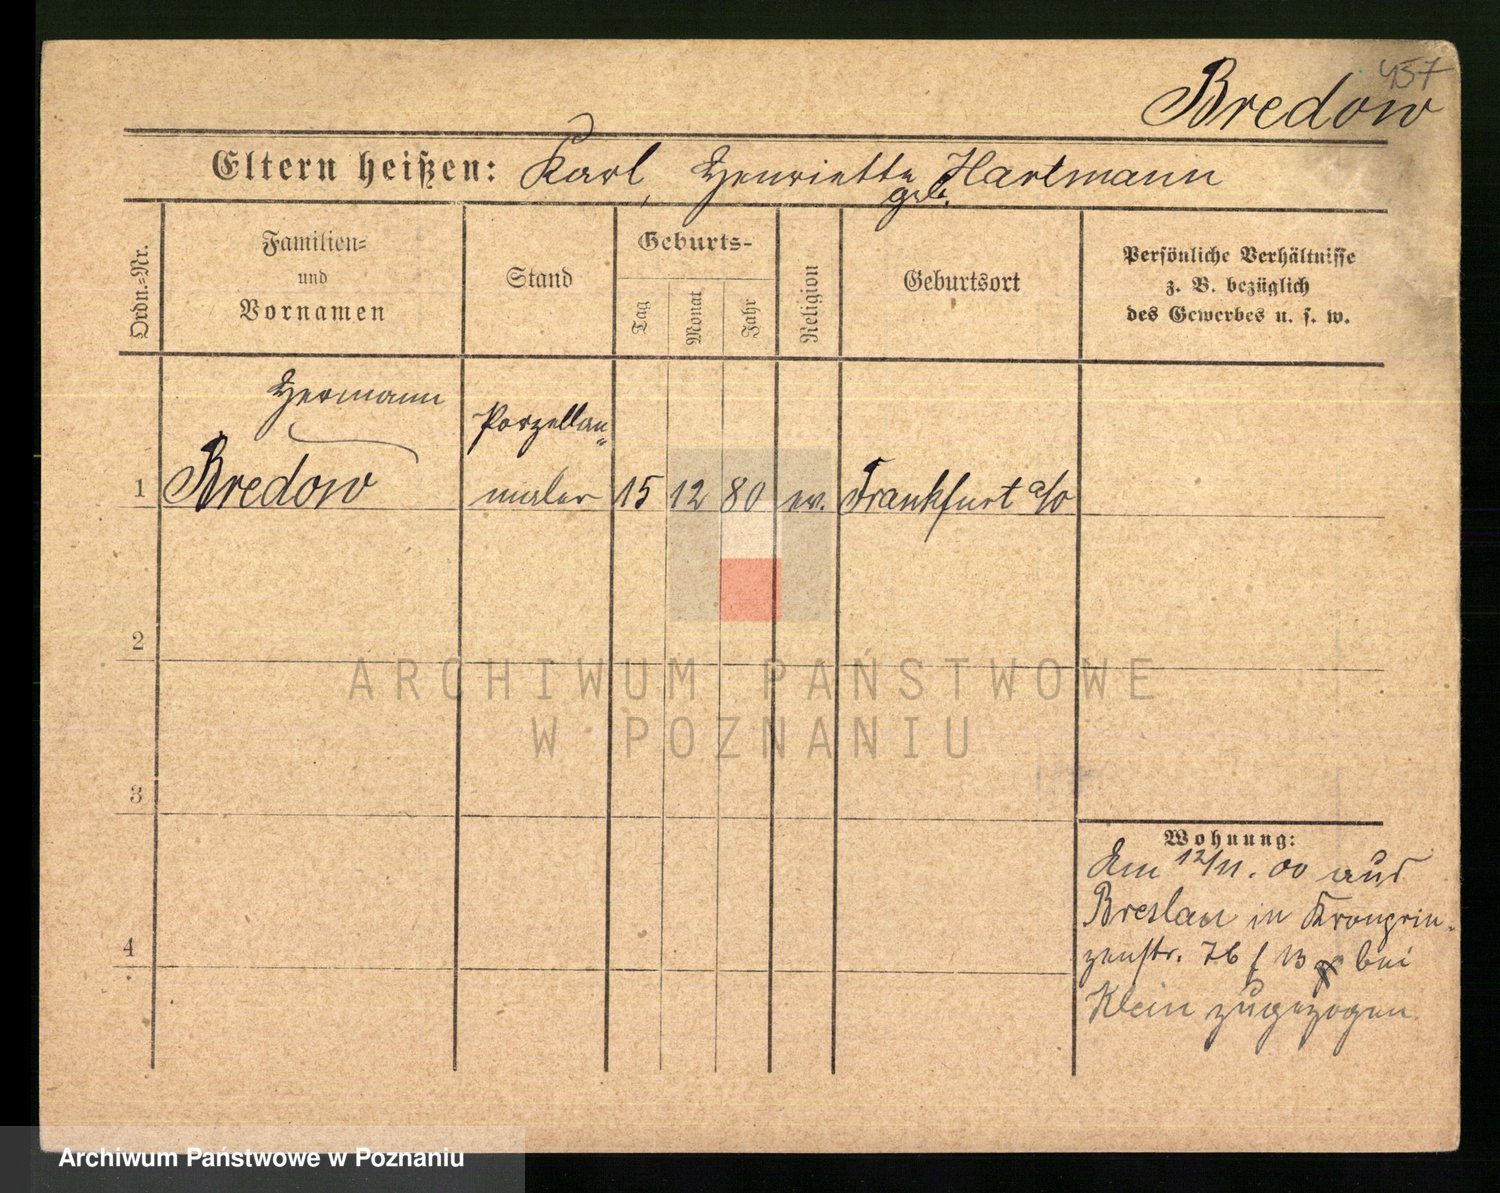 457
Bredow
Eltern heißen: Karl, Henriette geb. Hartmann
Ordn.-Nr.
Familien-
und
Vornamen
Stand
Geburts-
Tag
Monat
Jahr
Religion
Geburtsort
Persönliche Verhältnisse
z. B. bezüglich
des Gewerbes u. s. w.
Hermann
Porzellan-
1 Bredow maler 15 12 80 ev. Frankfurt a/O
2
ARCHIWUM PAŃSTWOWE
W POZNANIU
3
Wohnung:
Am 12/11. 00 aus
Breslau in Kronprin-
4
zenstr. 76 bei
Klein zugezogen.
Archiwum Państwowe w Poznaniu